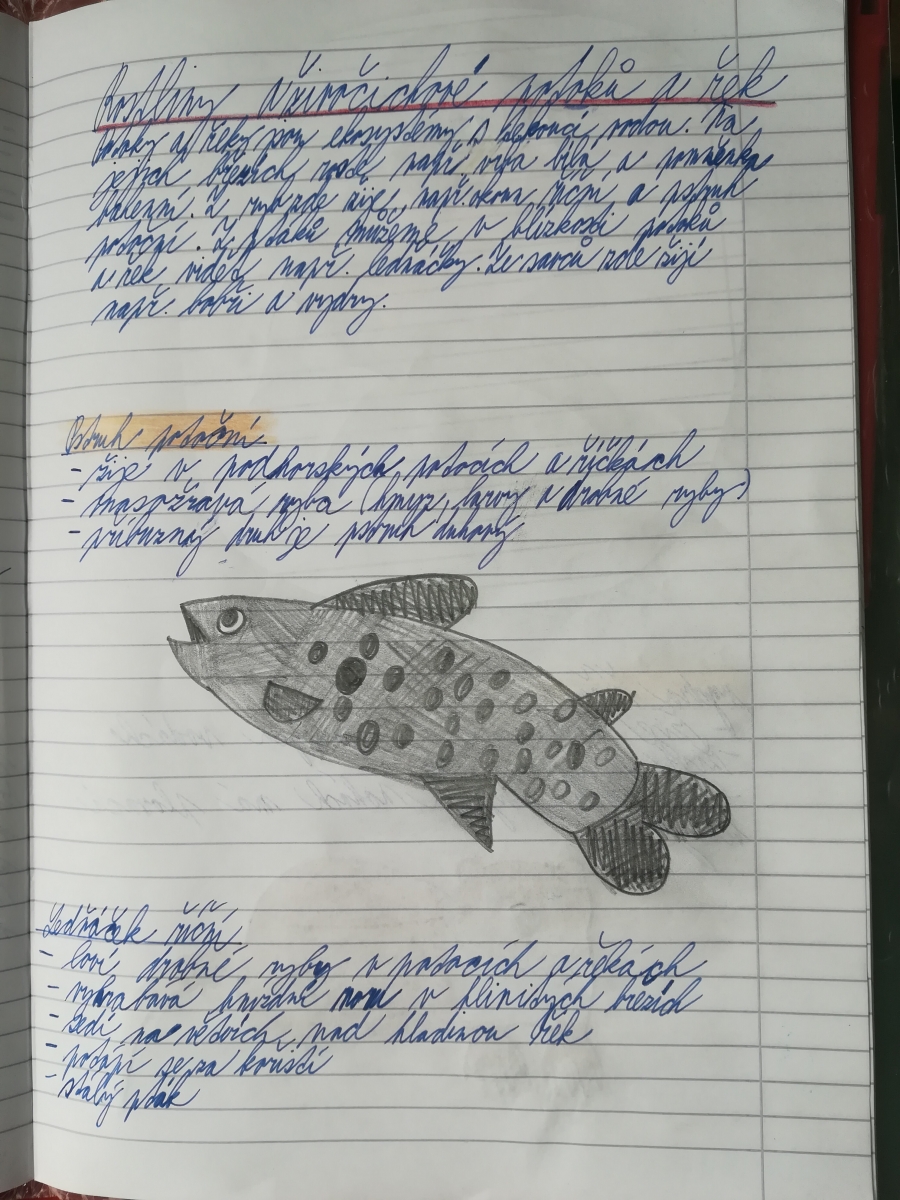 Rostliny a živočichové potoků a řek
Potoky a řeky jsou ekosystémy s tekoucí vodou. Na
jejich březích roste např. vrba bílá a pomněnka
bahenní. Z ryb zde žije např. okoun říční a pstruh
potoční. Z ptáků můžeme v blízkosti potoků
a řek vidět např. ledňáčky. Ze savců zde žijí
např. bobři a vydry.
Pstruh potoční
- žije v podhorských potocích a říčkách
- masožravá ryba (hmyz, larvy a drobné ryby)
- příbuzný druh je pstruh duhový
Ledňáček říční
- loví drobné ryby v potocích a řekách
- vyhrabává hnízdní noru v hlinitých březích
- sedí na větvích nad hladinou řek
- potápí se za kořistí
- stálý pták